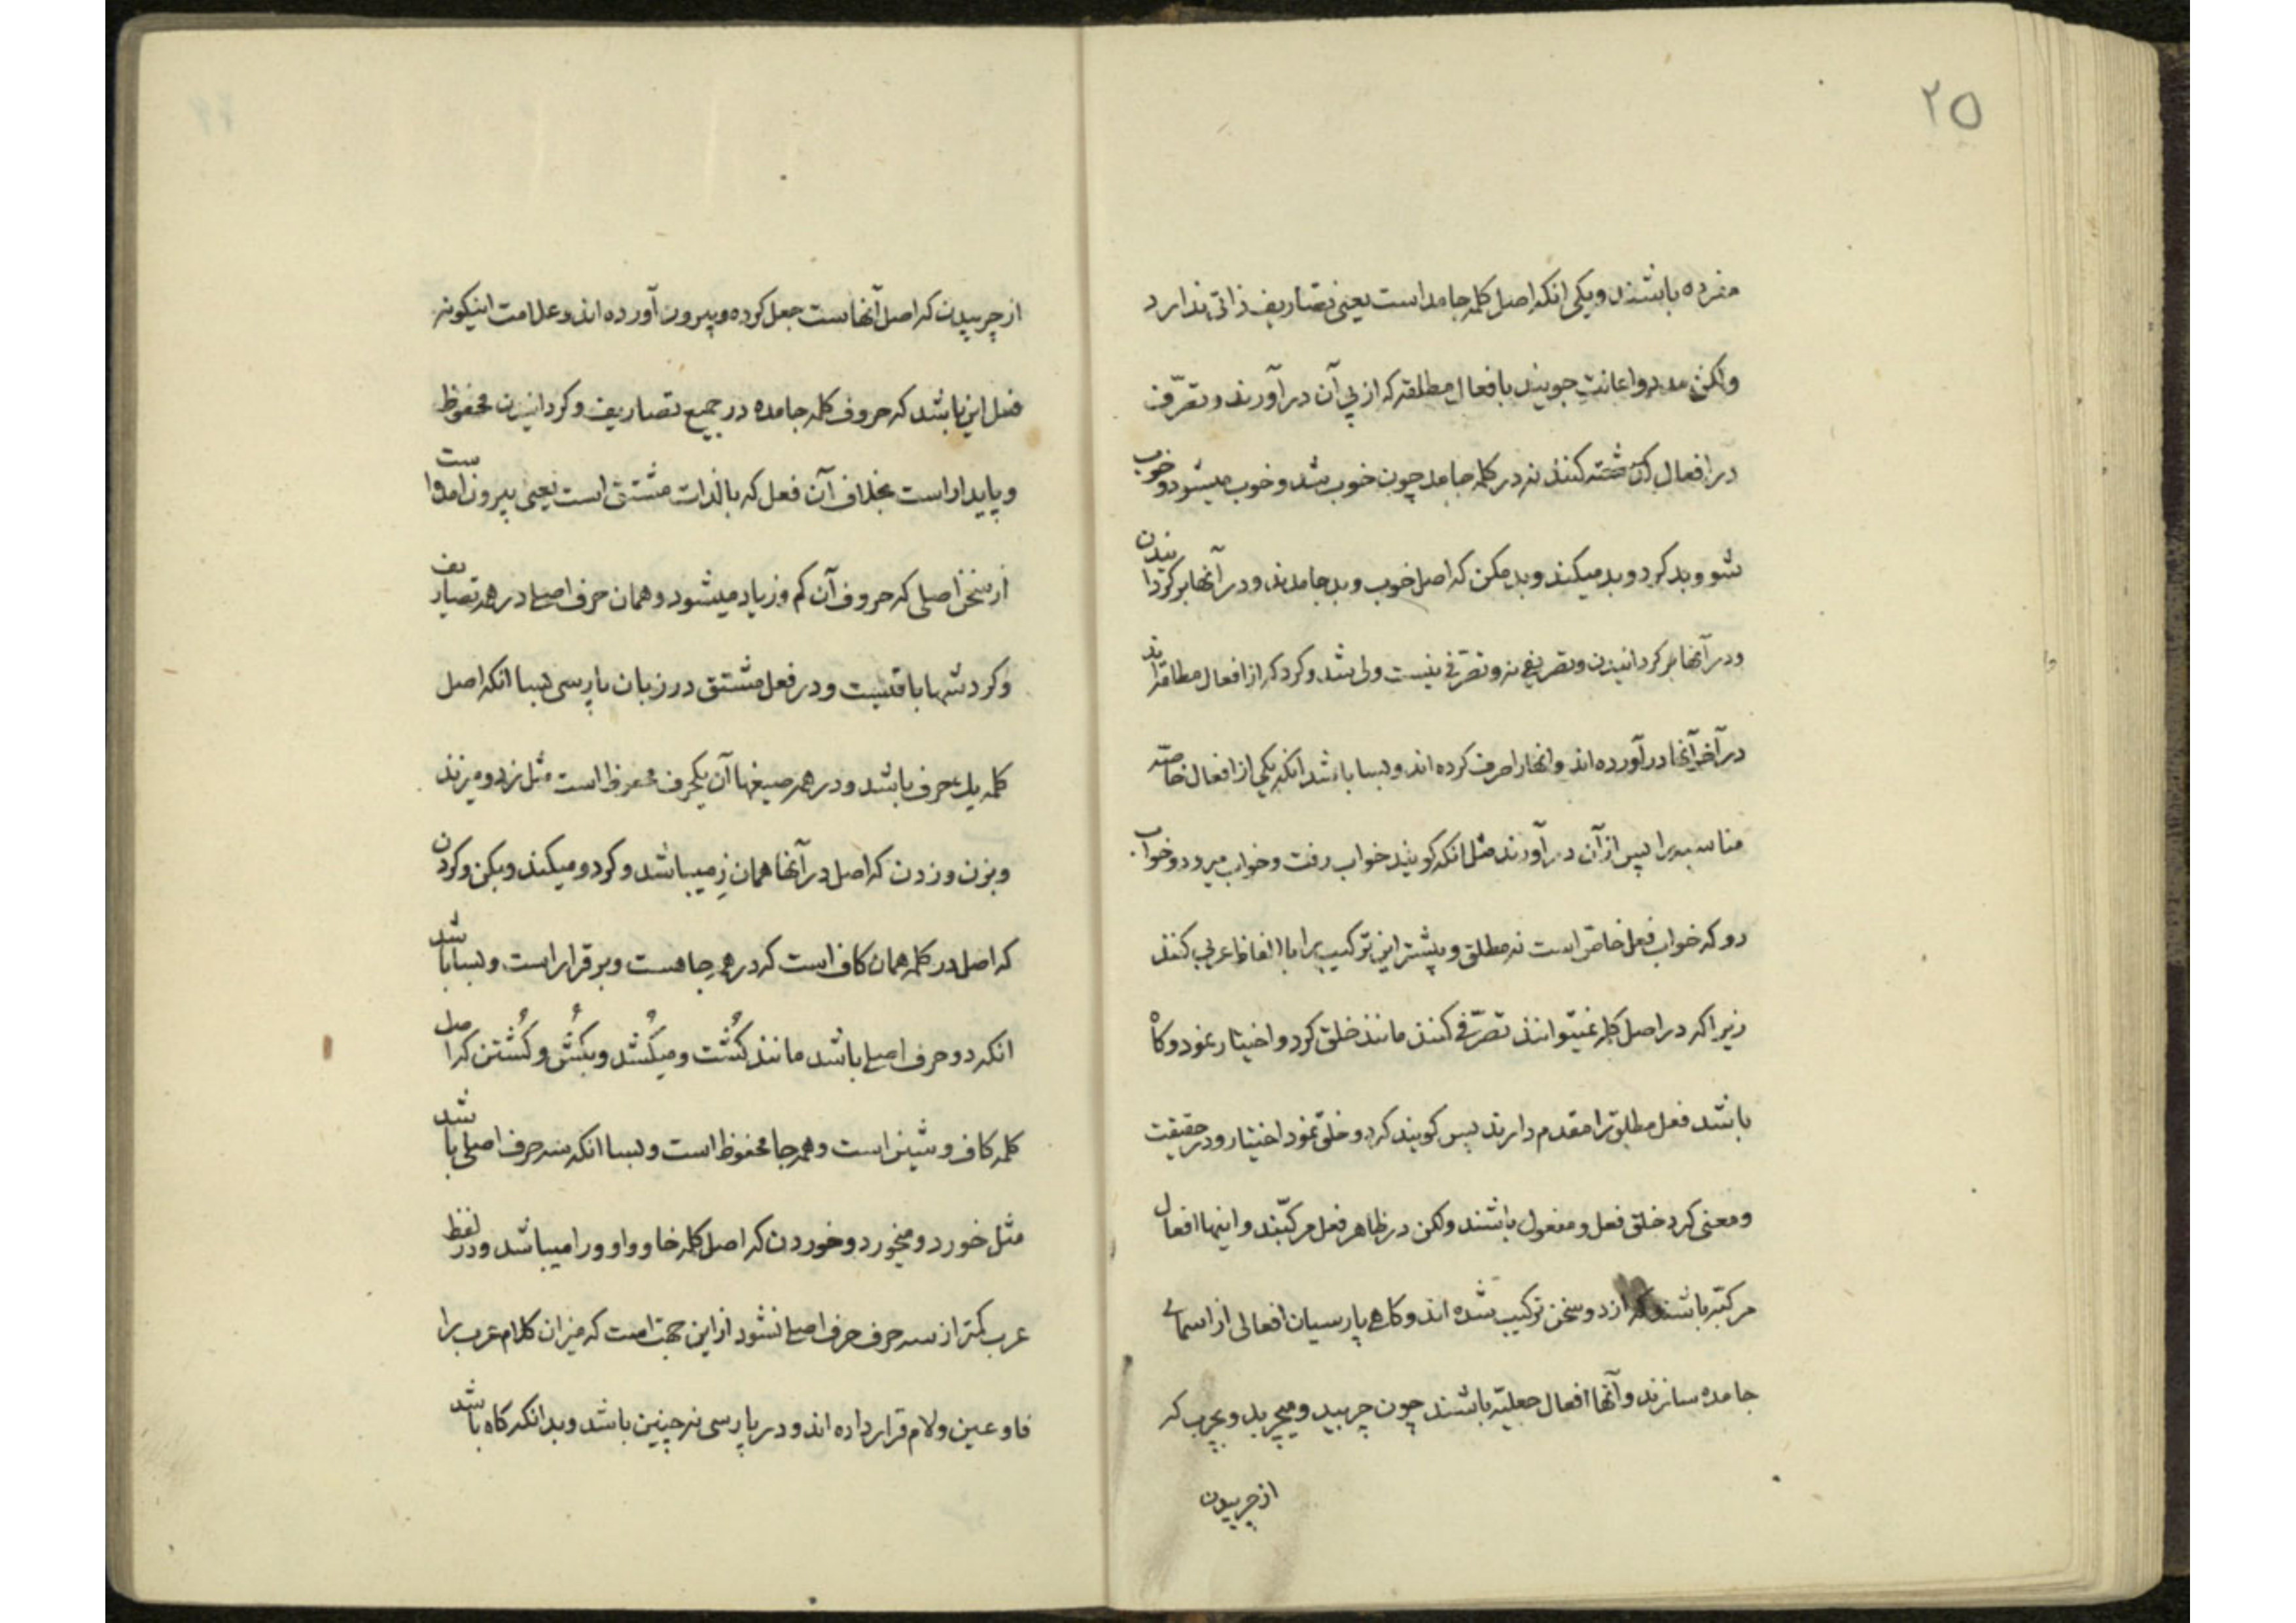 ۲۵
مفرده باشند و یکی انکه اصل کلمه جامد است یعنی تصاریف ذاتی ندارد
ولکن مدد و اعانت جویند بافعال مطلقه که از پی آن در آورند و تصرّف
در افعال کنند نه در کلمه جامد چون خوب شد و خوب میشود و خوب
شو و بد کرد و بد میکند و بد مکن که اصل خوب و بد جامدند و در آنها بر کردانیدن
و در آنها بر کردانیدن و تصریفی نه و تصرّفی نیست ولی شد و کرد که از افعال مطلقه‌اند
در آخر آنها در آورده اند و انها را صرف کرده اند و بسا باشد انکه یکی از افعال خاصّه
مناسبه را پس از آن در آورند مثل انکه کویند خواب رفت و خواب میرود و خواب
رو که خواب فعل خاصّ است نه مطلق و پیشتر این ترکیب را با الفاظ عربی کنند
زیرا که در اصل کلمه نمیتوانند تصرّفی کنند مانند خلق کرد و اختیار نمود و کاه
باشد فعل مطلق را مقدم دارند پس کویند کرد خلق و نمود اختیار و در حقیقت
و معنی کرد خلق فعل و مفعول باشند ولکن در ظاهر فعل مرکّبند و اینها افعال
مرکبّه باشند که از دو سخن ترکیب شده اند و کاهی پارسیان افعالی از اسمای
جامده سازند و آنها افعال جعلیّه باشند چون چربید و میچربد و بچرب که
از چربیدن
از چربیدن که اصل آنهاست جعل کرده و بیرون آورده اند و علامت اینکونه
فعل این باشد که حروف کلمه جامده در جمیع تصاریف و کردانیدن محفوظ
و پایدار است بخلاف آن فعل که بالذات مشتق است یعنی بیرون امده است
از سخن اصلی که حروف آن کم و زیاد میشود و همان حرف اصلی در همه تصاریف
و کردشها باقیست و در فعل مشتق در زبان پارسی بسا انکه اصل
کلمه یک حرف باشد و در همه صیغها آن یکحرف محفوظ است مثل زد و میزند
و بزن و زدن که اصل در آنها همان زِ میباشد و کرد و میکند و بکن و کردن
که اصل در کلمه همان کاف است که در همه جا هست و بر قرار است و بسا باشد
انکه دو حرف اصلی باشد مانند کُشت و میکُشد و بکُش و کُشتن که اصل
کلمه کاف و شین است و همه جا محفوظ است و بسا انکه سه حرف اصلی باشد
مثل خورد و میخورد و خوردن که اصل کلمه خا و واو و را میباشد و در لفظ
عرب کمتر از سه حرف حرف اصلی نشود از این جهت است که میزان کلام عرب را
فا و عین و لام قرار داده اند و در پارسی نه چنین باشد و بدانکه کاه باشد